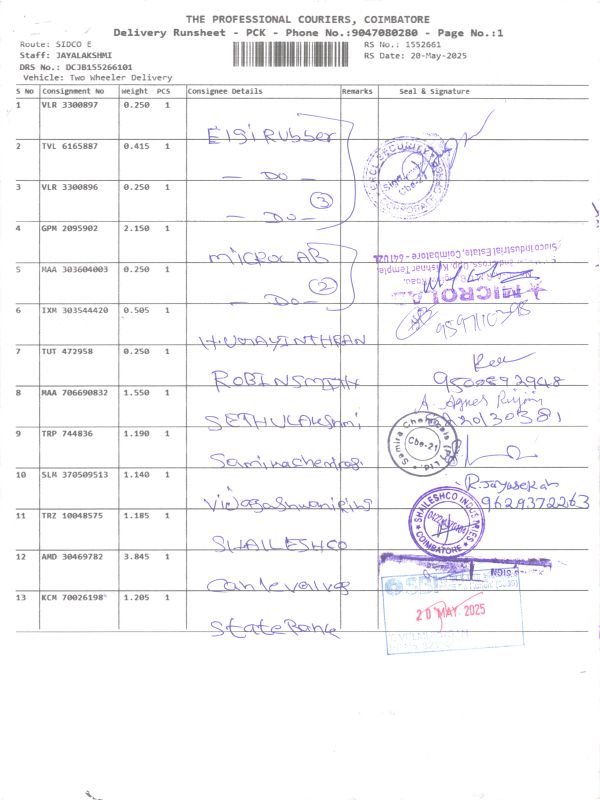 THE PROFESSIONAL COURIERS, COIMBATORE
Delivery Runsheet - PCK - Phone No.:9047080280 - Page No.:1
Route: SIDCO E
RS No.: 1552661
Staff: JAYALAKSHMI
RS Date: 20-May-2025
DRS No.: DCJB155266101
Vehicle: Two Wheeler Delivery
S No Consignment No Weight PCS Consignee Details Remarks Seal & Signature
1 VLR 3300897 0.250 1 Elgi Rubber
2 TVL 6165887 0.415 1 - Do -
3 VLR 3300896 0.250 1 - Do - 3
4 GPM 2095902 2.150 1 micro AB
5 MAA 303604003 0.250 1 - Do - 2
6 IXM 303544420 0.505 1
7 TUT 472958 0.250 1 ROBINSMITH
9500892948
8 MAA 706690832 1.550 1 SETHULAKshmi
A. Agnes
9 TRP 744836 1.190 1
Samira Chemicals (P) Ltd. Cbe-21
10 SLM 370509513 1.140 1
R.Jayasekar
9629372263
11 TRZ 10048575 1.185 1 SHAILESHCO
SHAILESHCO INDUSTRIES COIMBATORE
12 AMD 30469782 3.845 1
13 KCM 70026198 1.205 1 State Bank
20 MAY 2025